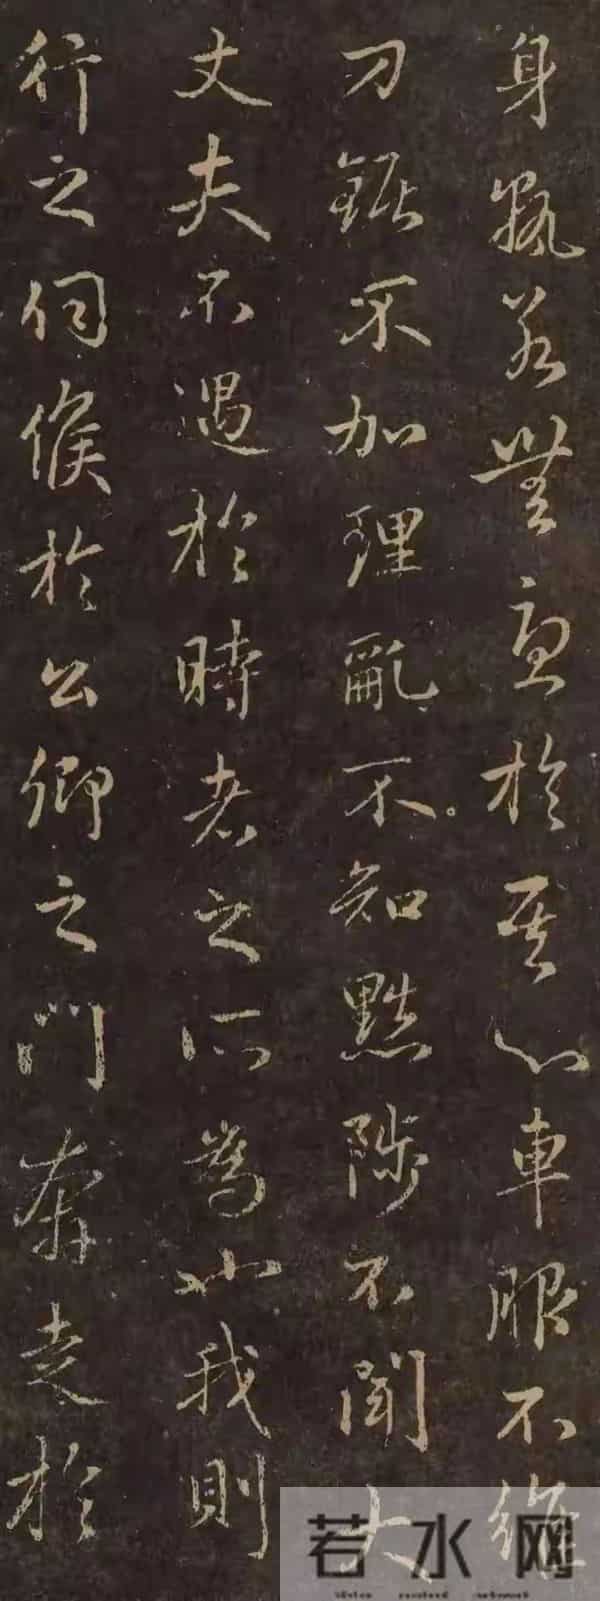 身孰若無憂於其心車服不維
刀鋸不加理亂不知黜陟不聞大
丈夫不遇於時者之所為也我則
行之伺候於公卿之門奔走於
若水网